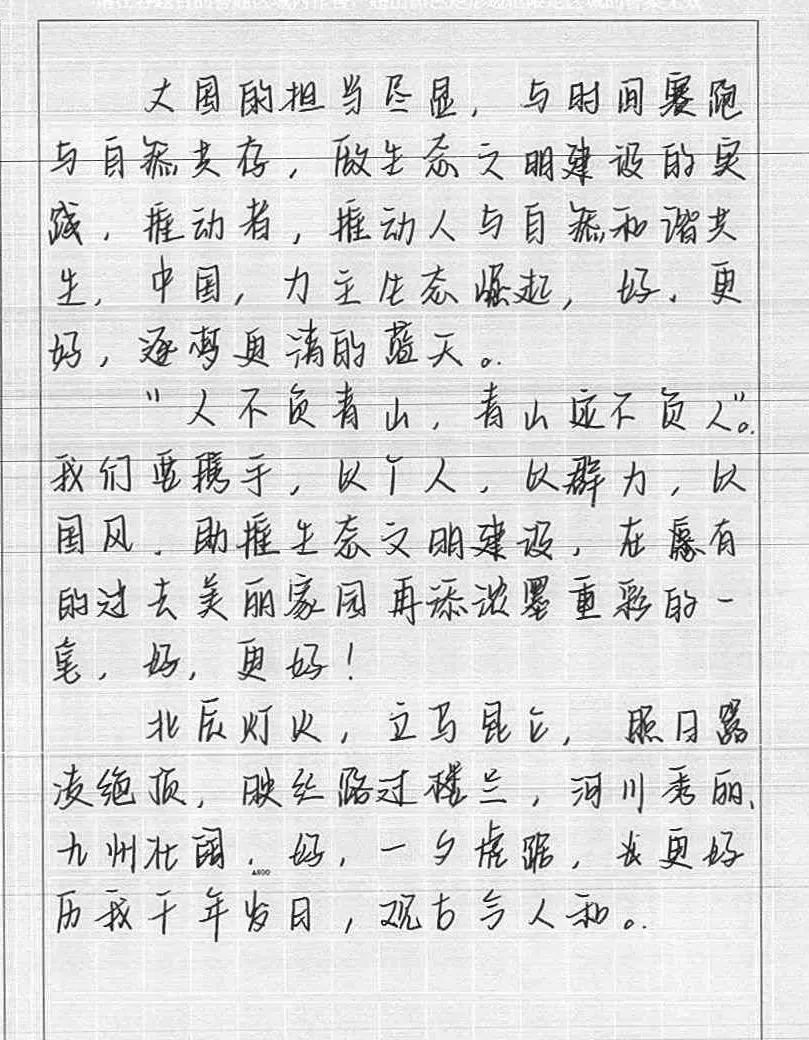 大国的担当尽显，与时间赛跑
与自然共存，做生态文明建设的实
践，推动者，推动人与自然和谐共
生，中国，力主生态崛起，好，更
好，逐梦更清的蓝天。
“人不负青山，青山定不负人”。
我们要携手，以个人，以群力，以
国风，助推生态文明建设，在原有
的过去美丽家园再添浓墨重彩的一
笔，好，更好！
北辰灯火，立马昆仑，照日
凌绝顶，映丝路过楼兰，河川秀丽、
九州壮阔，好，一夕虎踞，更好
历我千年岁日，观古今人和。
A800